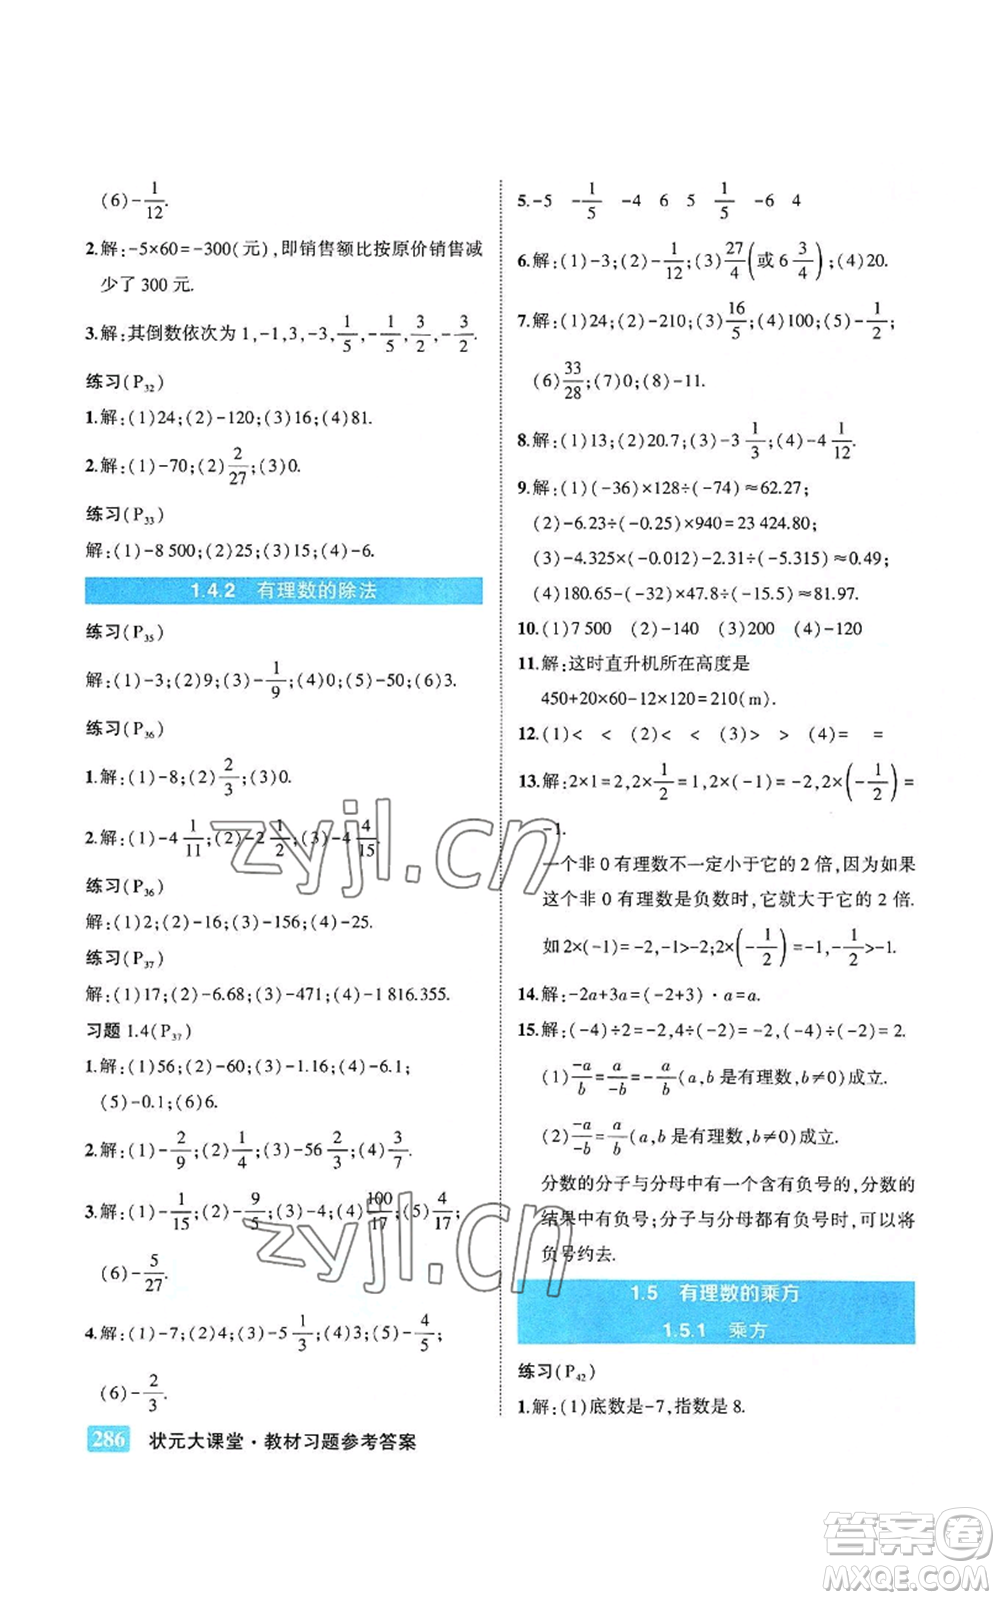 (6)-1/12.
2.解:-5×60=-300(元),即销售额比按原价销售减
少了 300 元.
3.解:其倒数依次为 1,-1,3,-3,1/5,-1/5,3/2,-3/2.
练习(P32)
1.解:(1)24;(2)-120;(3)16;(4)81.
2.解:(1)-70;(2)2/27;(3)0.
练习(P33)
解:(1)-8 500;(2)25;(3)15;(4)-6.
1.4.2 有理数的除法
练习(P35)
解:(1)-3;(2)9;(3)-1/9;(4)0;(5)-50;(6)3.
练习(P36)
1.解:(1)-8;(2)2/3;(3)0.
2.解:(1)-4 1/11;(2)-2 1/2;(3)-4 4/15.
练习(P36)
解:(1)2;(2)-9;(3)-156;(4)-25.
练习(P37)
解:(1)17;(2)-6.68;(3)-151;(4)-1 816.355.
习题 1.4(P37)
1.解:(1)56;(2)-60;(3)-1.16;(4)-6.1;
(5)-0.1;(6)6.
2.解:(1)-2/9;(2)1/4;(3)-56 2/3;(4)3/7.
3.解:(1)-1/15;(2)-9/5;(3)-4;(4)100/17;(5)4/17;
(6)-5/27.
4.解:(1)-7;(2)4;(3)-5 1/3;(4)3;(5)-4/5;
(6)-2/3.
286 状元大课堂·教材习题参考答案
5.-5 -1/5 -4 6 5 1/5 -6 4
6.解:(1)-3;(2)-1/12;(3)27/4(或 6 3/4);(4)20.
7.解:(1)24;(2)-210;(3)16/5;(4)100;(5)-1/2;
(6)33/28;(7)0;(8)-11.
8.解:(1)13;(2)20.7;(3)-3 1/3;(4)-4 1/12.
9.解:(1)(-36)×128÷(-74)≈62.27;
(2)-6.23÷(-0.25)×940=23 424.80;
(3)-4.325×(-0.012)÷(-2.31)÷(-5.315)≈0.49;
(4)180.65-(-32)×47.8÷(-15.5)≈81.97.
10.(1)7 500 (2)-140 (3)200 (4)-120
11.解:这时直升机所在高度是
450+20×60-12×120=210(m).
12.(1)< < (2)< < (3)> > (4)= =
13.解:2×1=2,2×1/2=1,2×(-1)=-2,2×(-1/2)=
-1.
一个非 0 有理数不一定小于它的 2 倍,因为如果
这个非 0 有理数是负数时,它就大于它的 2 倍.
如2×(-1)=-2,-1>-2;2×(-1/2)=-1,-1/2>-1.
14.解:-2a+3a=(-2+3)·a=a.
15.解:(-4)÷2=-2,4÷(-2)=-2,(-4)÷(-2)=2.
(1)-a/b=a/-b=-a/b(a,b 是有理数,b≠0)成立.
(2)-a/-b=a/b(a,b 是有理数,b≠0)成立.
分数的分子与分母中有一个含有负号的,分数的
结果中有负号;分子与分母都有负号时,可以将
负号约去.
1.5 有理数的乘方
1.5.1 乘方
练习(P42)
1.解:(1)底数是-7,指数是 8.
zyjl.cn
zyjl.cn
答案卷
MXQE.COM